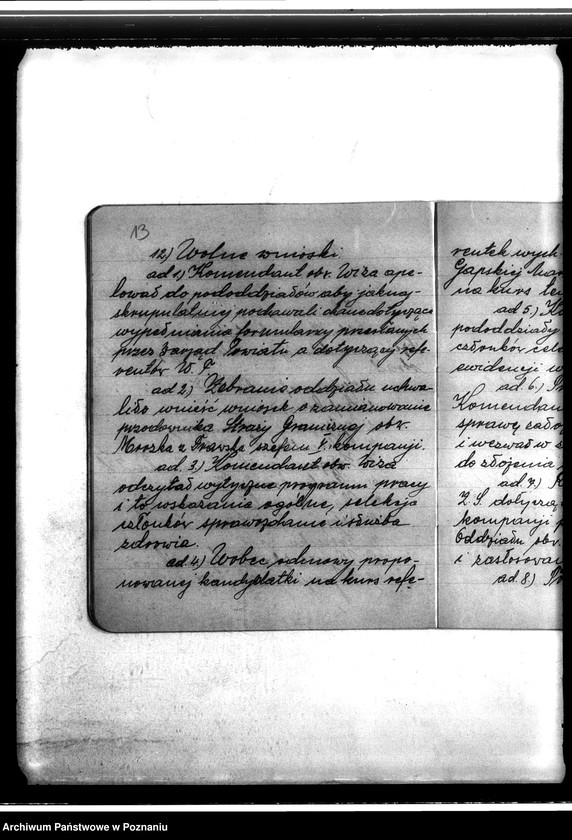 13
12) Wolne wnioski.
ad 1) Komendant obw. Wiza ape-
lował do pododdziałów aby jaknaj-
skrupulatniej podawali dane dotyczące
wypełniania formularzy przesłanych
przez Zarząd Powiatu a dotyczący refe-
rentów W. F.
ad 2) Zebranie oddziału uchwa-
liło wnieść wniosek o zamianowanie
przodownika Straży Granicznej obw.
Mroczka z Drawska szefem V. kompanji.
ad. 3) Komendant obw. Wiza
odczytał wytyczne programu pracy
i to, wskazania ogólne, selekcja
członków sprawozdanie i służba
zdrowia.
ad 4) Wobec odmowy propo-
nowanej kandydatki na kurs refe-
rentek wych.
na kurs
ad 5)
pododdziały
członków
ewidencji
ad. 6.)
Komendan
sprawę
i wezwał w
do złożenia
ad. 7.)
Z.S. dotycz
kompanji
Oddziału obw.
i zastosowan
ad. 8)
Archiwum Państwowe w Poznaniu